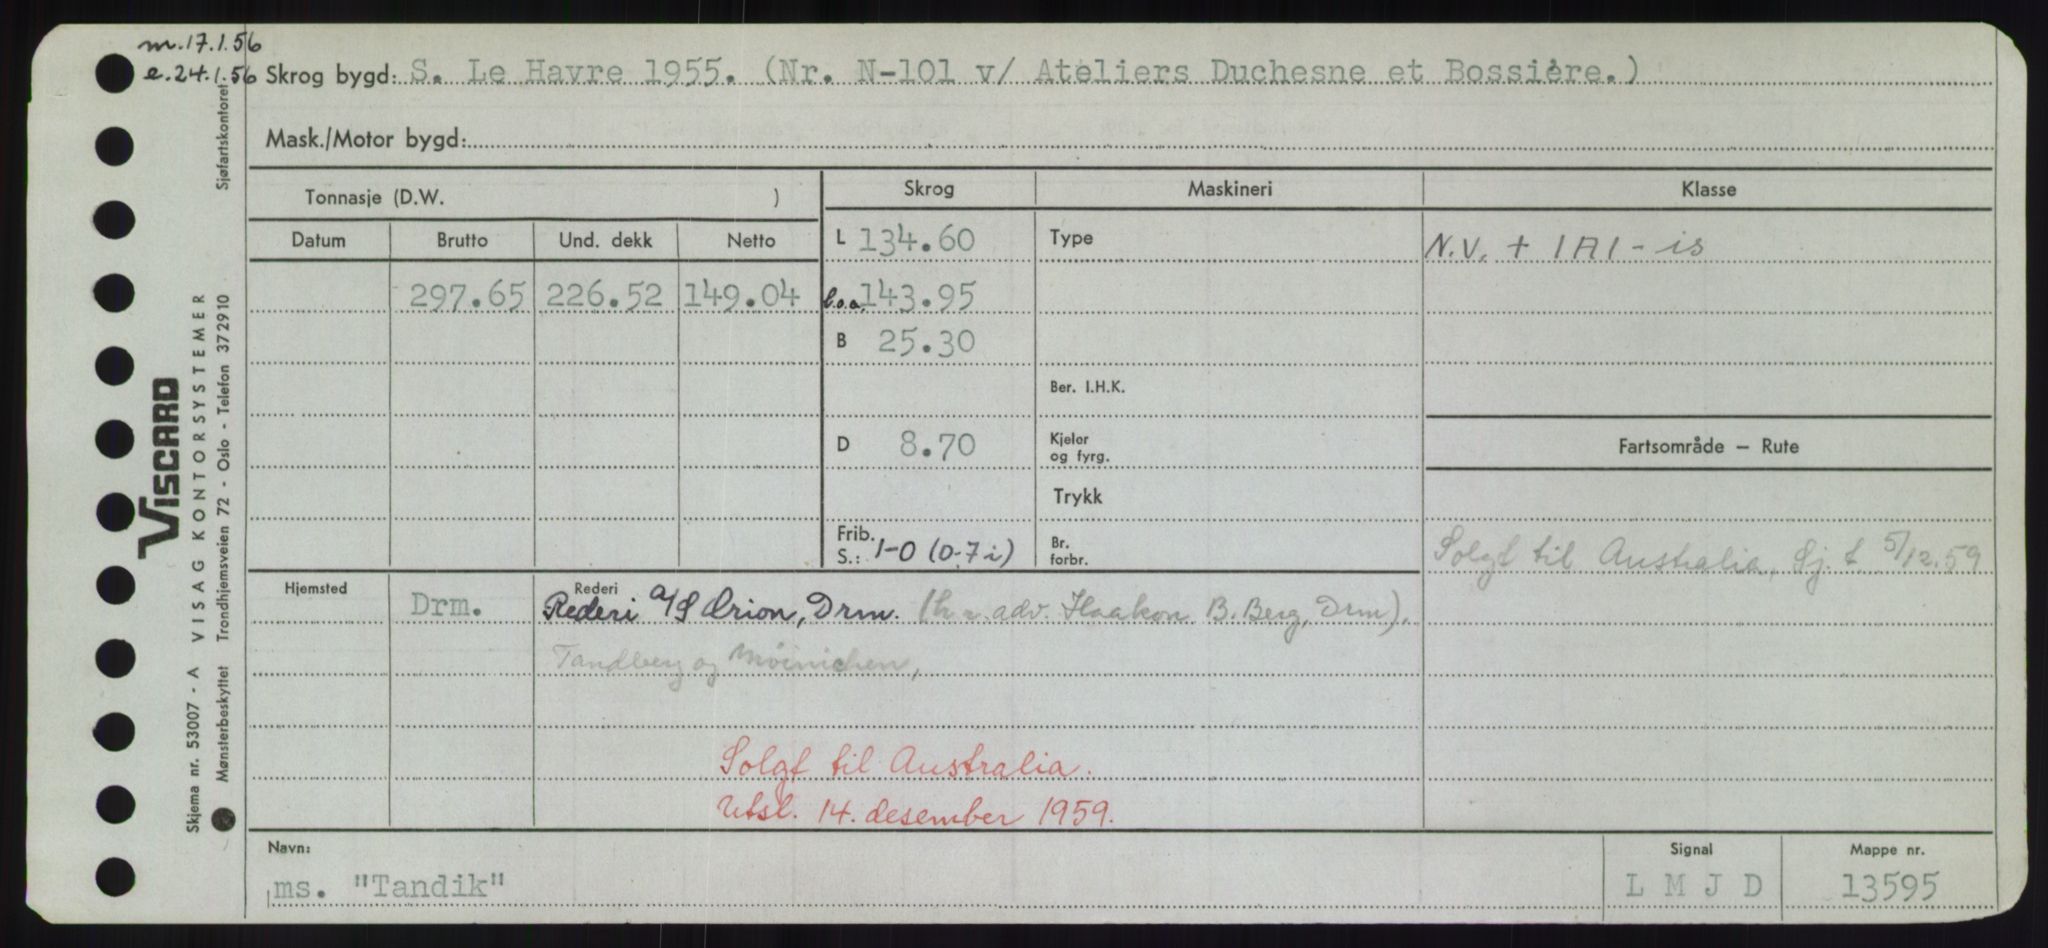 m. 17.1.56
e. 24.1.56 Skrog bygd: S. Le Havre 1955. (Nr. N-101 v/ Ateliers Duchesne et Bossière.)
Mask./Motor bygd:
Tonnasje (D.W. )
Skrog Maskineri Klasse
Datum Brutto Und. dekk Netto
L 134.60 Type N.V. + 1A1 - is
297.65 226.52 149.04 l.o.a. 143.95
B 25.30
Ber. I.H.K.
D 8.70 Kjeler og fyrg.
Fartsområde — Rute
Trykk
Frib. S.: 1-0 (0-7 i) Br. forbr.
Solgt til Australia, Sj. t. 5/12.59
Hjemsted Drm. Rederi
Rederi A/S Orion, Drm. (h.r.adv. Haakon B. Berg, Drm).
Tandberg og Møinichen,
Solgt til Australia.
Utsl. 14. desember 1959.
Navn: Signal Mappe nr.
ms. "Tandik" L M J D 13595
Skjema nr. 53007 - A VISAG KONTORSYSTEMER
Mønsterbeskyttet Trondhjemsveien 72 - Oslo - Telefon 37 29 10 Sjøfartskontoret
VISCARD